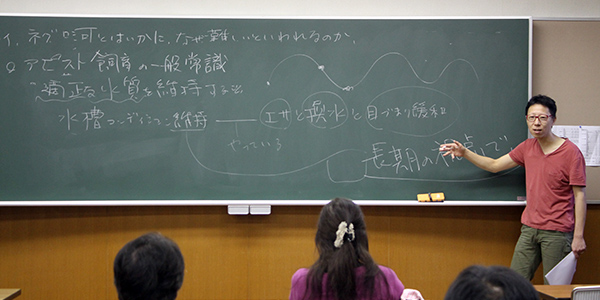 1. ネグロ河とはいかに、なぜ難しいといわれるのか、
2 アピスト飼育の一般常識
適正な水質を維持する
水槽コンディション維持 エサと換水と目づまり緩和
やっている
長期の視点で